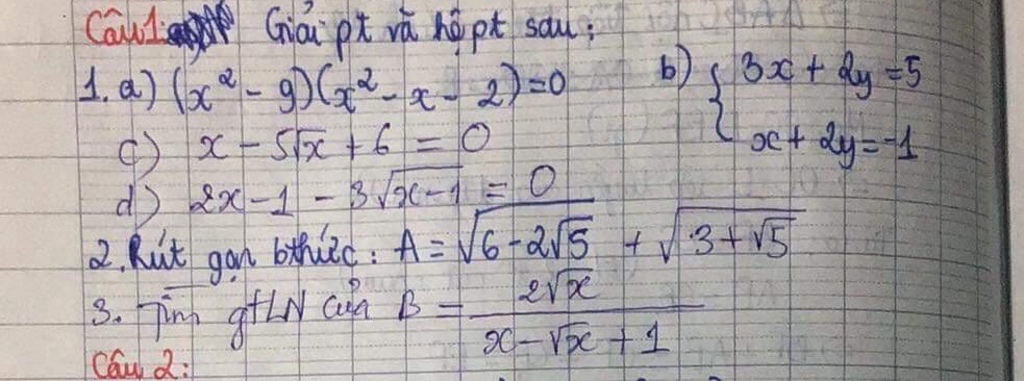 Câu 1: Giải pt và hệ pt sau:
1. a) (x² - 9)(x² - x - 2) = 0 b) { 3x + 2y = 5
x + 2y = -1
c) x - 5√x + 6 = 0
d) 2x - 1 - 3√(x-1) = 0
2. Rút gọn bthức: A = √(6 - 2√5) + √(3 + √5)
3. Tìm gtLN của B = 2√x / (x - √x + 1)
Câu 2: